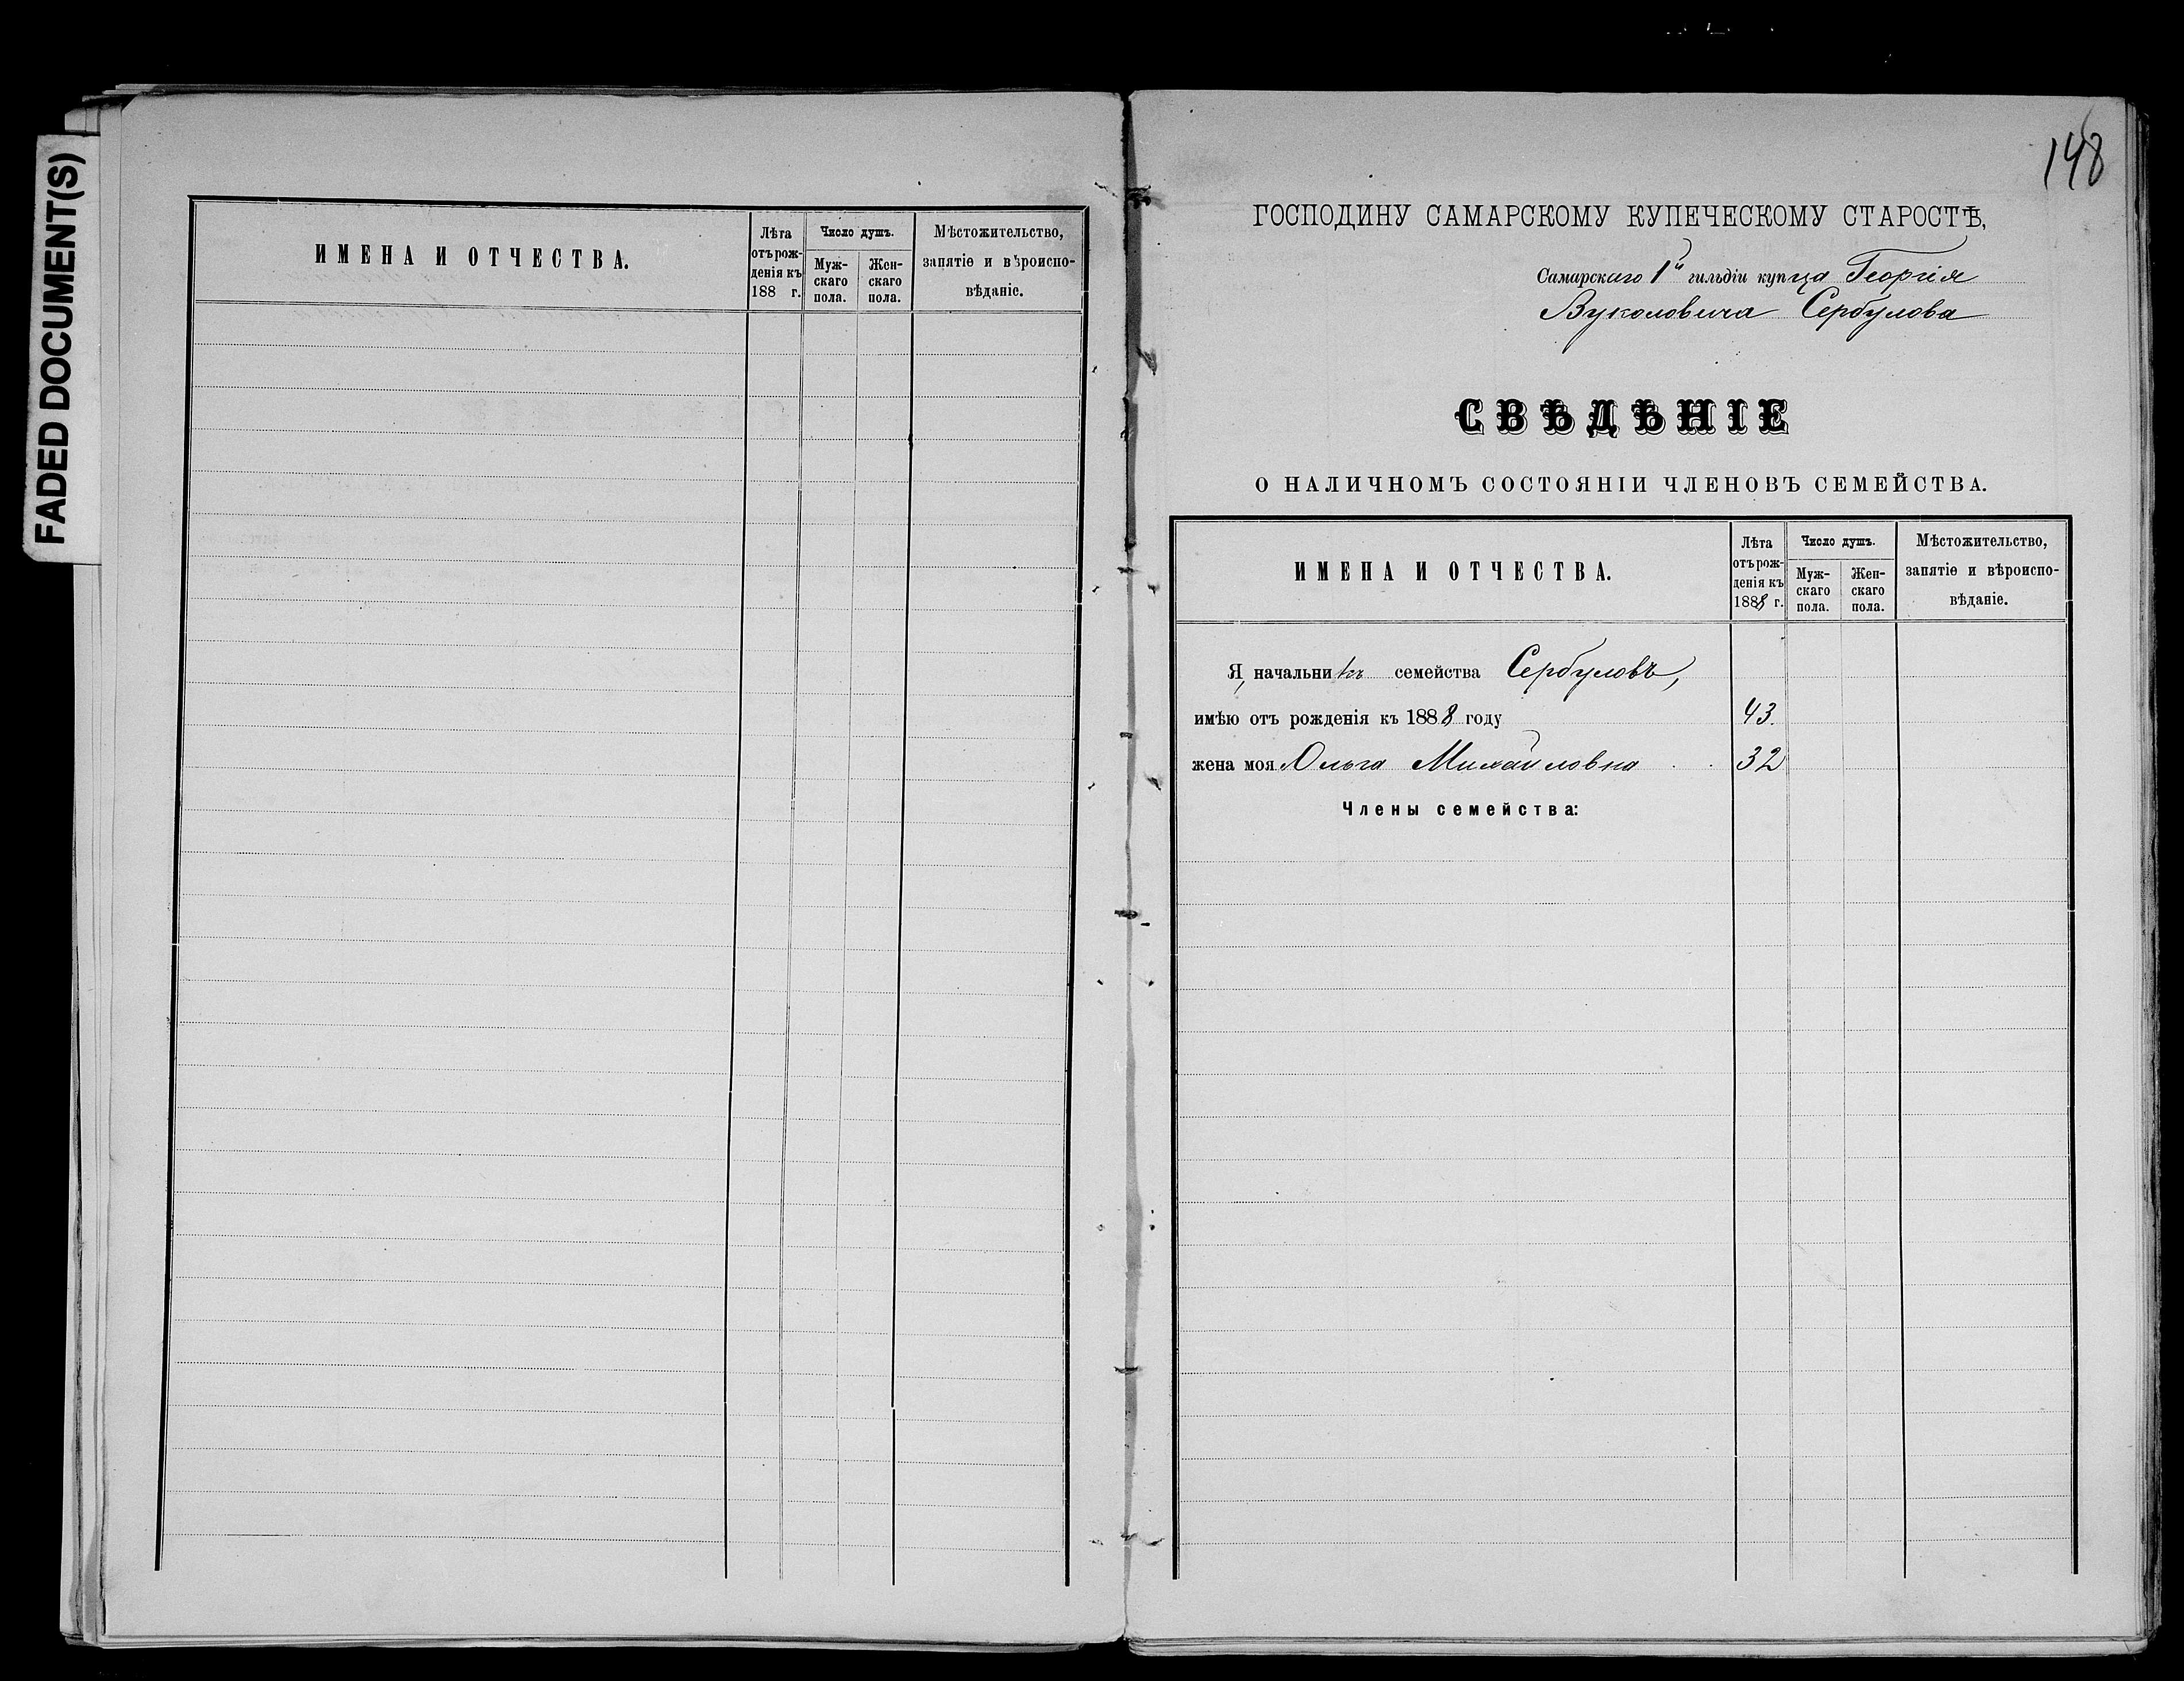 FADED DOCUMENT(S)
ИМЕНА И ОТЧЕСТВА.
Лѣта отъ рожденія къ 188 г.
Число душъ.
Мужскаго пола.
Женскаго пола.
Мѣстожительство, занятіе и вѣроисповѣданіе.
148
ГОСПОДИНУ САМАРСКОМУ КУПЕЧЕСКОМУ СТАРОСТѢ,
Самарскаго 1й гильдіи купца Георгія
Вуколовича Сербулова
СВѢДѢНІЕ
О НАЛИЧНОМЪ СОСТОЯНІИ ЧЛЕНОВЪ СЕМЕЙСТВА.
ИМЕНА И ОТЧЕСТВА.
Лѣта отъ рожденія къ 1888 г.
Число душъ.
Мужскаго пола.
Женскаго пола.
Мѣстожительство, занятіе и вѣроисповѣданіе.
Я, начальникъ семейства Сербуловъ,
имѣю отъ рожденія къ 1888 году 43.
жена моя Ольга Михайловна 32
Члены семейства: